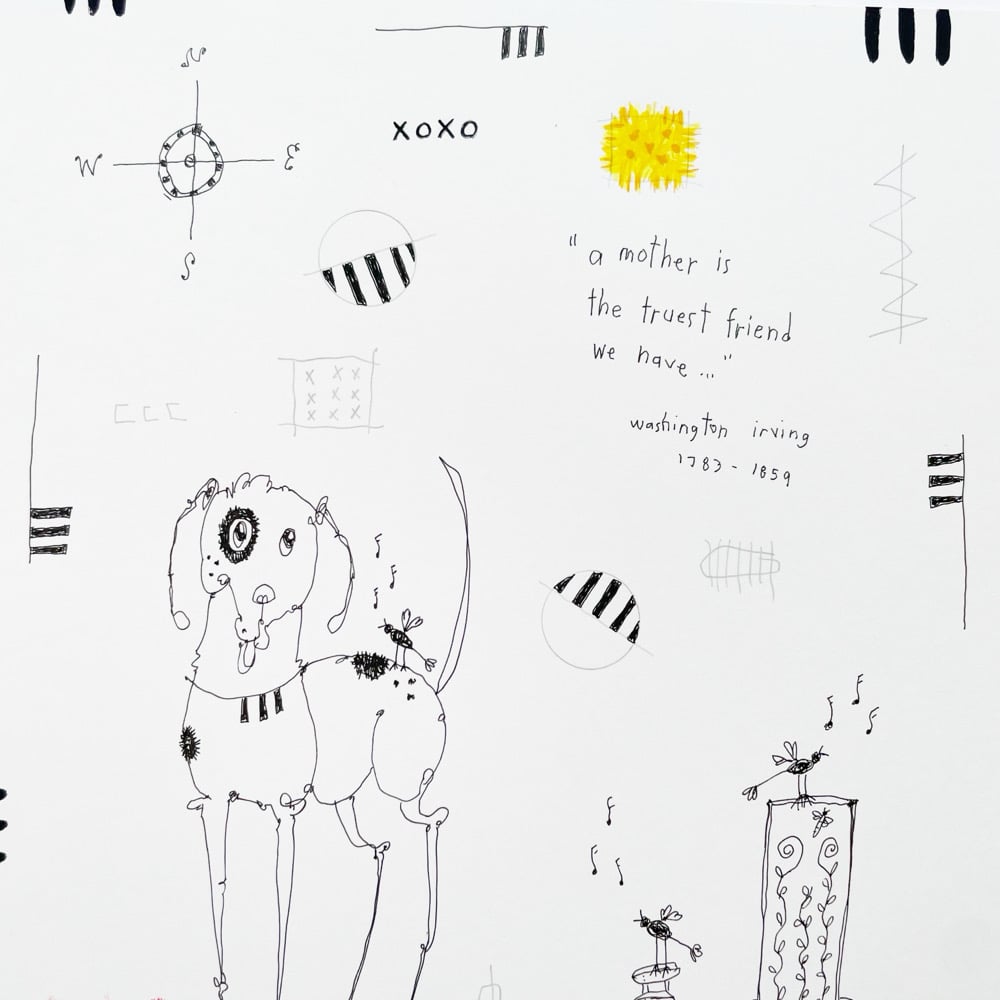 N
W E
S
XOXO
"a mother is
the truest friend
we have ..."
washington irving
1783 - 1859
x x x
x x x
x x x